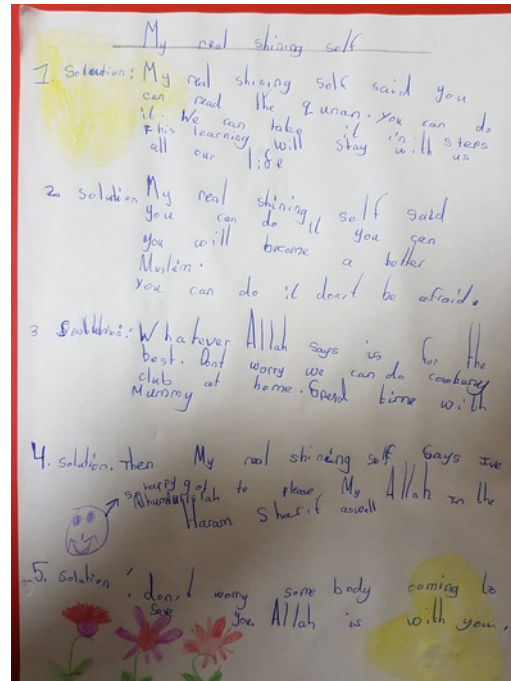 My real shining self
1. Solution: My real shining self said you
can read the qunan. you can do
it. We can take it in steps
This learning will stay with us
all our life
2. solution My real shining self said
you can do it you can
you will become a better
Muslim.
You can do it don't be afraid.
3 Solution: Whatever Allah says is for the
best. Dont worry we can do cookery
club at home. Spend time with
Mummy
4. solution. Then My real shining self Says Ive
happy got to please My Allah In the
Alhumdulilah Haram Sharif aswell
5. Solution: don't worry some body coming to
Save you. Allah is with you.